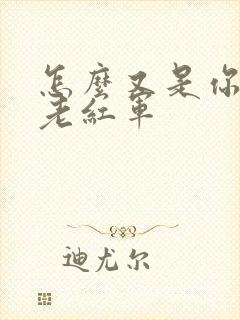 怎麼又是你
老紅軍
迪尤尔